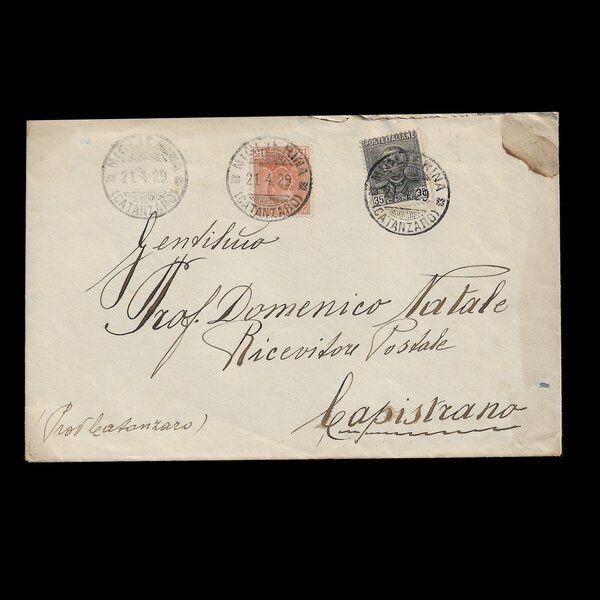 MIGLIERINA
21.4.29
(CATANZARO)
MIGLIERINA
21.4.29
(CATANZARO)
POSTE ITALIANE
35 35
MIGLIERINA
(CATANZARO)
Gentilmo
Prof. Domenico Natale
Ricevitore Postale
Capistrano
(Prov Catanzaro)